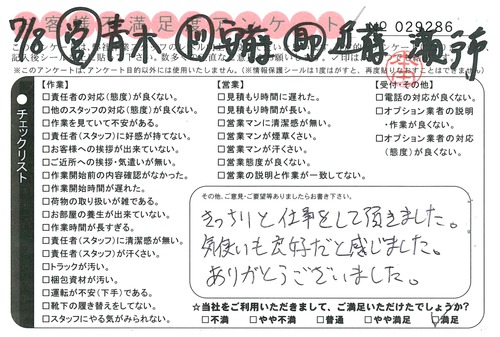 お客様不満足度アンケート
NO 029286
7/8 宮 青木
※このアンケートは、アンケート目的以外には使用いたしません。(※情報保護シールは1度がすと、再度貼りなおすことはできません)
チェックリスト
【作業】
□責任者の対応(態度)が良くない。
□他のスタッフの対応(態度)が良くない。
□作業を見ていて不安がある。
□責任者(スタッフ)に好感が持てない。
□お客様への挨拶が出来ていない。
□ご近所への挨拶・気遣いが無い。
□作業開始前の内容確認がなかった。
□作業開始時間が遅れた。
□荷物の取り扱いが雑である。
□お部屋の養生が出来ていない。
□作業時間が長すぎる。
□責任者(スタッフ)に清潔感が無い。
□責任者(スタッフ)が汗くさい。
□トラックが汚い。
□梱包資材が汚い。
□運転が不安(下手)である。
□靴下の履き替えをしてない。
□スタッフにやる気がみられない。
【営業】
□見積もり時間に遅れた。
□見積もり時間が長い。
□営業マンに清潔感が無い。
□営業マンが煙草くさい。
□営業マンが汗くさい。
□営業態度が良くない。
□営業の説明と作業が一致してない。
【受付・その他】
□電話の対応が良くない。
□オプション業者の説明
・作業が良くない。
□オプション業者の対応
(態度)が良くない。
その他、ご意見・ご要望等ありましたらお書き下さい。
きっちりと仕事をして頂きました。
気使いも良好だと感じました。
ありがとうございました。
☆当社をご利用いただきまして、ご満足いただけたでしょうか?
□不満 □やや不満 □普通 □やや満足 □満足